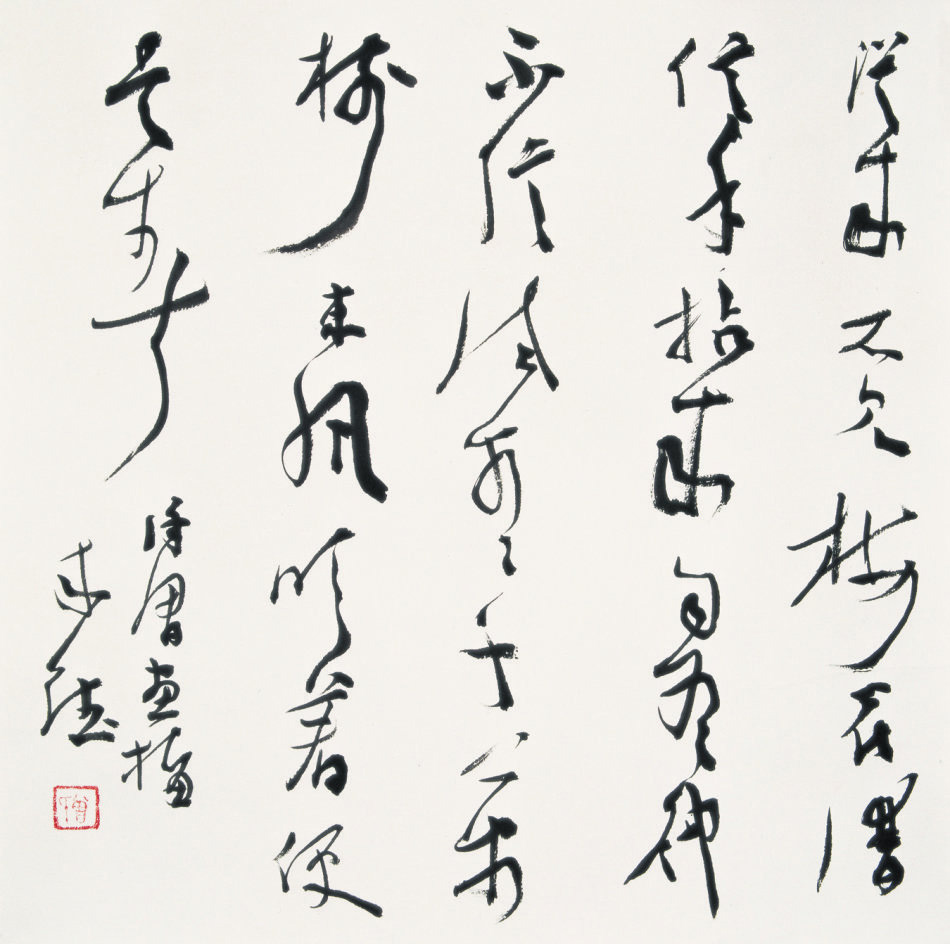 從來不見梅花譜
信手拈來自有神
不信試看千萬
樹東風吹着便
是
畫梅